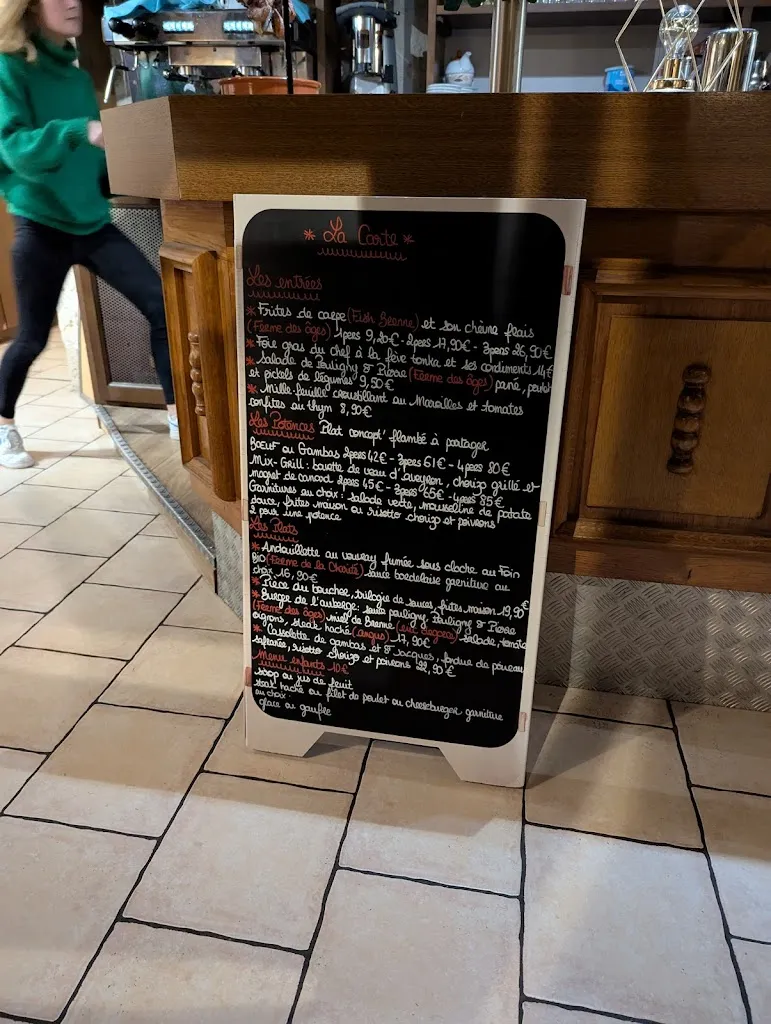 * La Carte *
Les entrées
* Frites de carpe (Fish Brenne) et son chèvre frais
(Ferme des âges) 1pers 9,20€ - 2pers 17,90€ - 3pers 26,90€
* Foie gras du chef à la fève tonka et ses condiments 14€
* Salade de Pouligny St Pierre (Ferme des âges) pané,
et pickels de légumes 9,50€
* Mille-feuille croustillant au Maroilles et tomates
confites au thym 8,90€
Les Potences Plat concept' flambé à partager
Bœuf ou Gambas 2pers 42€ - 3pers 61€ - 4pers 80€
Mix-Grill: bavette de veau d'aveyron, chorizo grillé et
magret de canard 2pers 45€ - 3pers 65€ - 4pers 85€
Garnitures au choix: salade verte, mousseline de patate
douce, frites maison ou risotto chorizo et poivrons
2 pour une potence
Les Plats
* Andouillette au vouvray fumée sous cloche au Foin
BIO (Ferme de la Chaité) sauce bordelaise garniture au
choix 16,90€
* Pièce du boucher, trilogie de sauces, frites maison 19,90€
* Burger de l'auberge: sauce pouligny, Pouligny St Pierre
(Ferme des âges) miel de Brenne salade, tomate
oignons, steak haché (angus) 17,90€
* Cassolette de gambas et St Jacques, fondue de poireau
safranée, risotto chorizo et poivrons 22,90€
Menu enfants 10€
sirop ou jus de fruit
steak haché ou filet de poulet ou cheeseburger garniture
au choix
glace ou gaufre